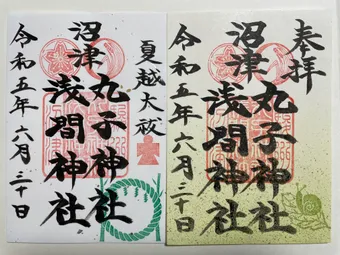 奉拝
沼津
丸子神社
浅間神社
令和五年六月三十日
夏越大祓
沼津
丸子神社
浅間神社
令和五年六月三十日